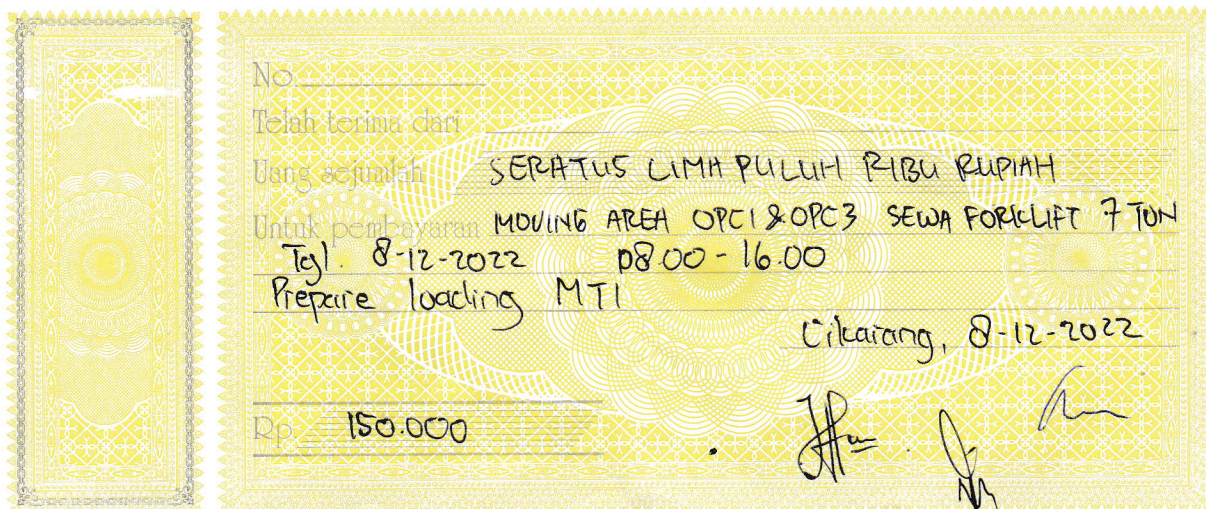 No.
Telah terima dari
Uang sejumlah SERATUS LIMA PULUH RIBU RUPIAH
Untuk pembayaran MOVING AREA OPC1 & OPC3 SEWA FORKLIFT 7 TON
Tgl. 8-12-2022 08.00 - 16.00
Prepare loading MTI
Cikarang, 8-12-2022
Rp. 150.000